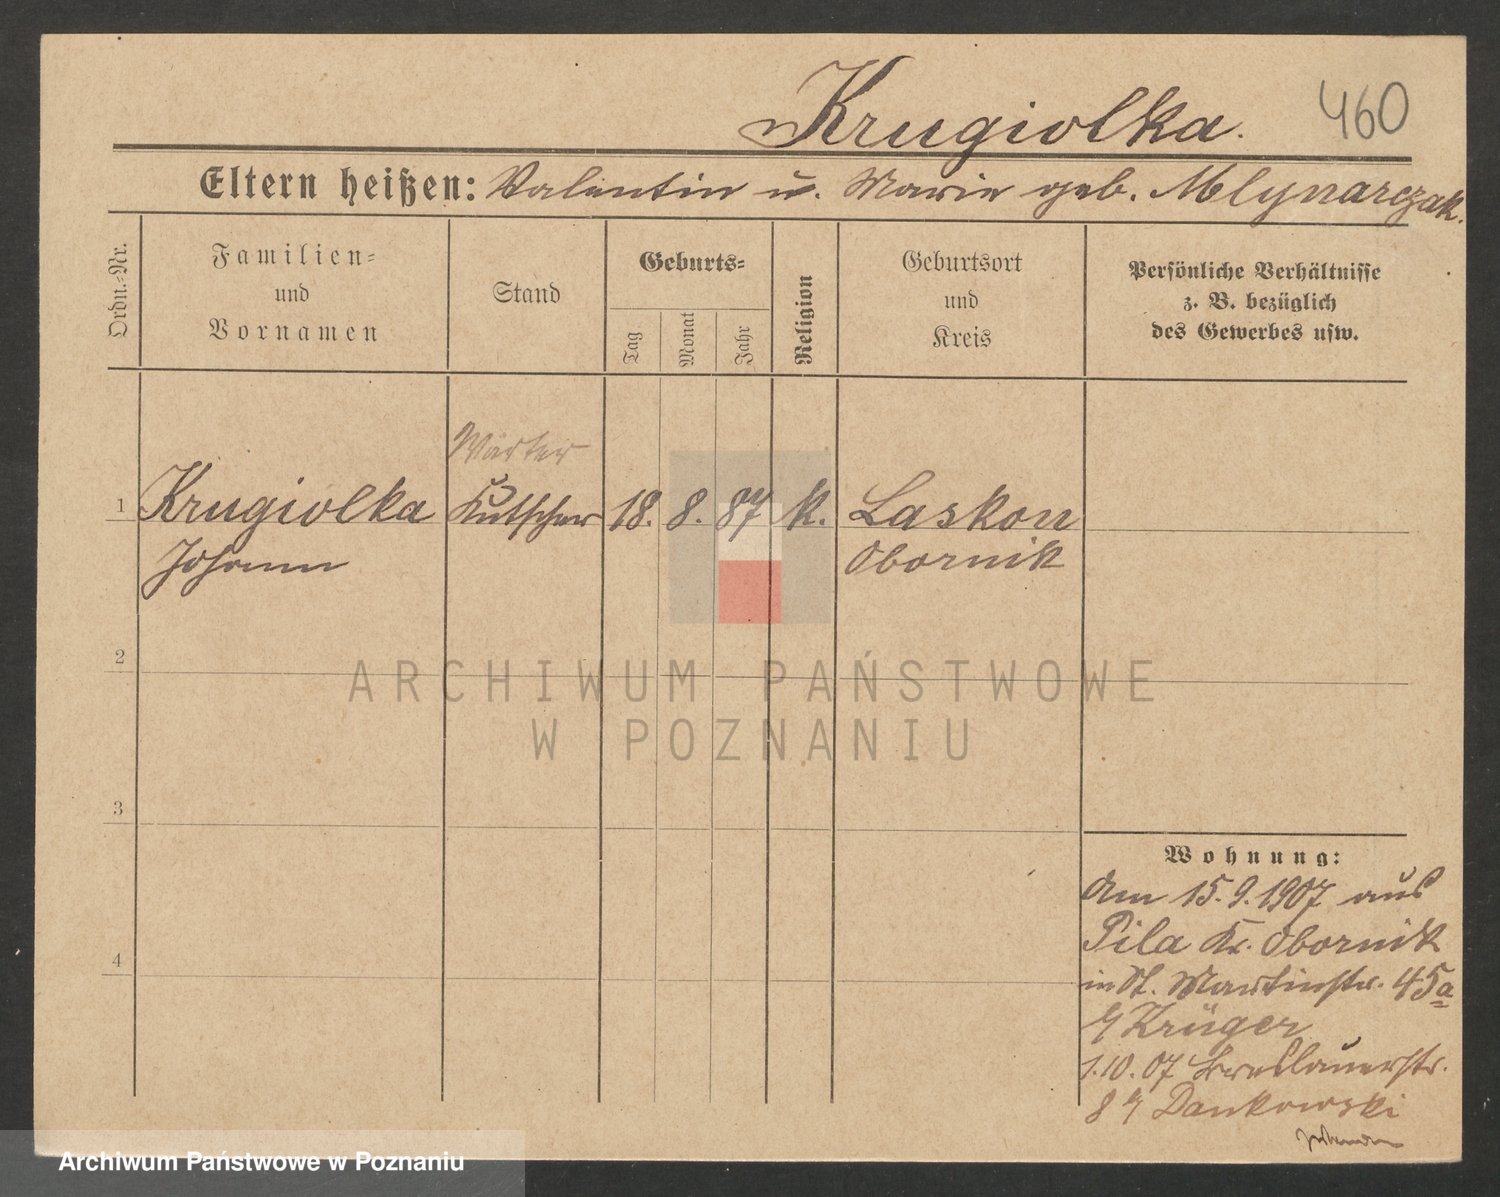 Krugiolka.
460
Eltern heißen: Valentin u. Marie geb. Mlynarczak.
Ordn.-Nr.
Familien-
und
Vornamen
Stand
Geburts-
Tag
Monat
Jahr
Religion
Geburtsort
und
Kreis
Persönliche Verhältnisse
z. B. bezüglich
des Gewerbes usw.
Wärter
1 Krugiolka Kutscher 18. 8. 87 k. Laskon
Johann Obornik
2
ARCHIWUM PAŃSTWOWE
W POZNANIU
3
4
Wohnung:
Am 15.9.1907 aus
Pila Kr. Obornik
in St. Martinstr. 45a
Krüger
1.10.07 Breslauerstr.
8 Dankowski
Archiwum Państwowe w Poznaniu